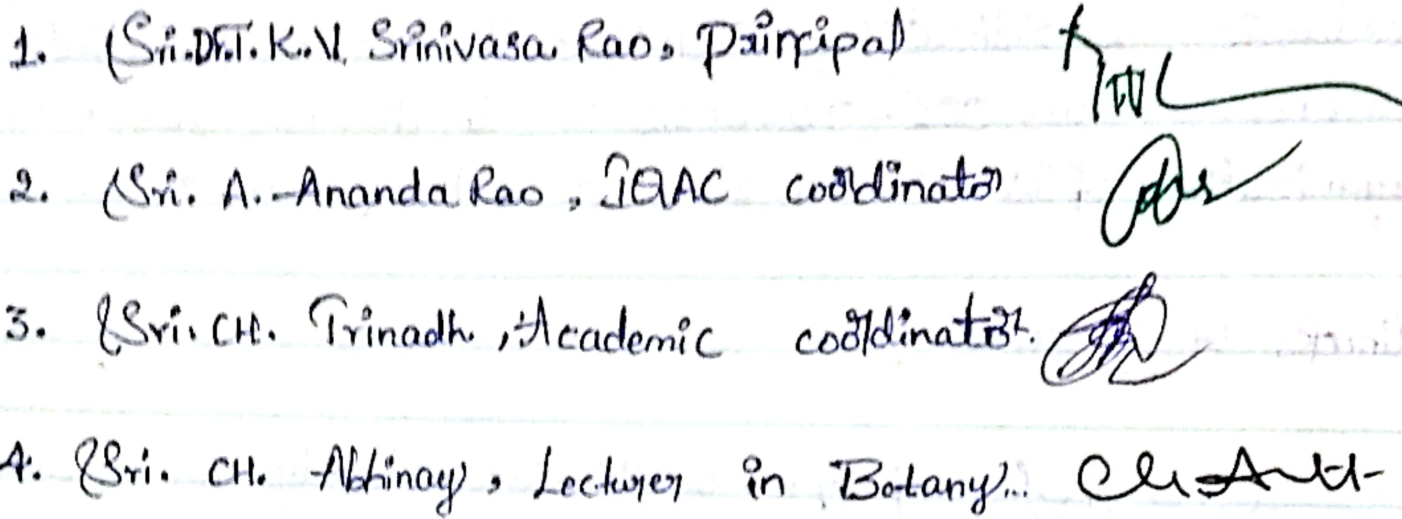 1. Sri.Dr.T.K.V. Srinivasa Rao, Principal
2. Sri. A. Ananda Rao, IQAC coordinator
3. Sri. CH. Trinadh, Academic coordinator.
4. Sri. CH. Abhinay, Lecturer in Botany..